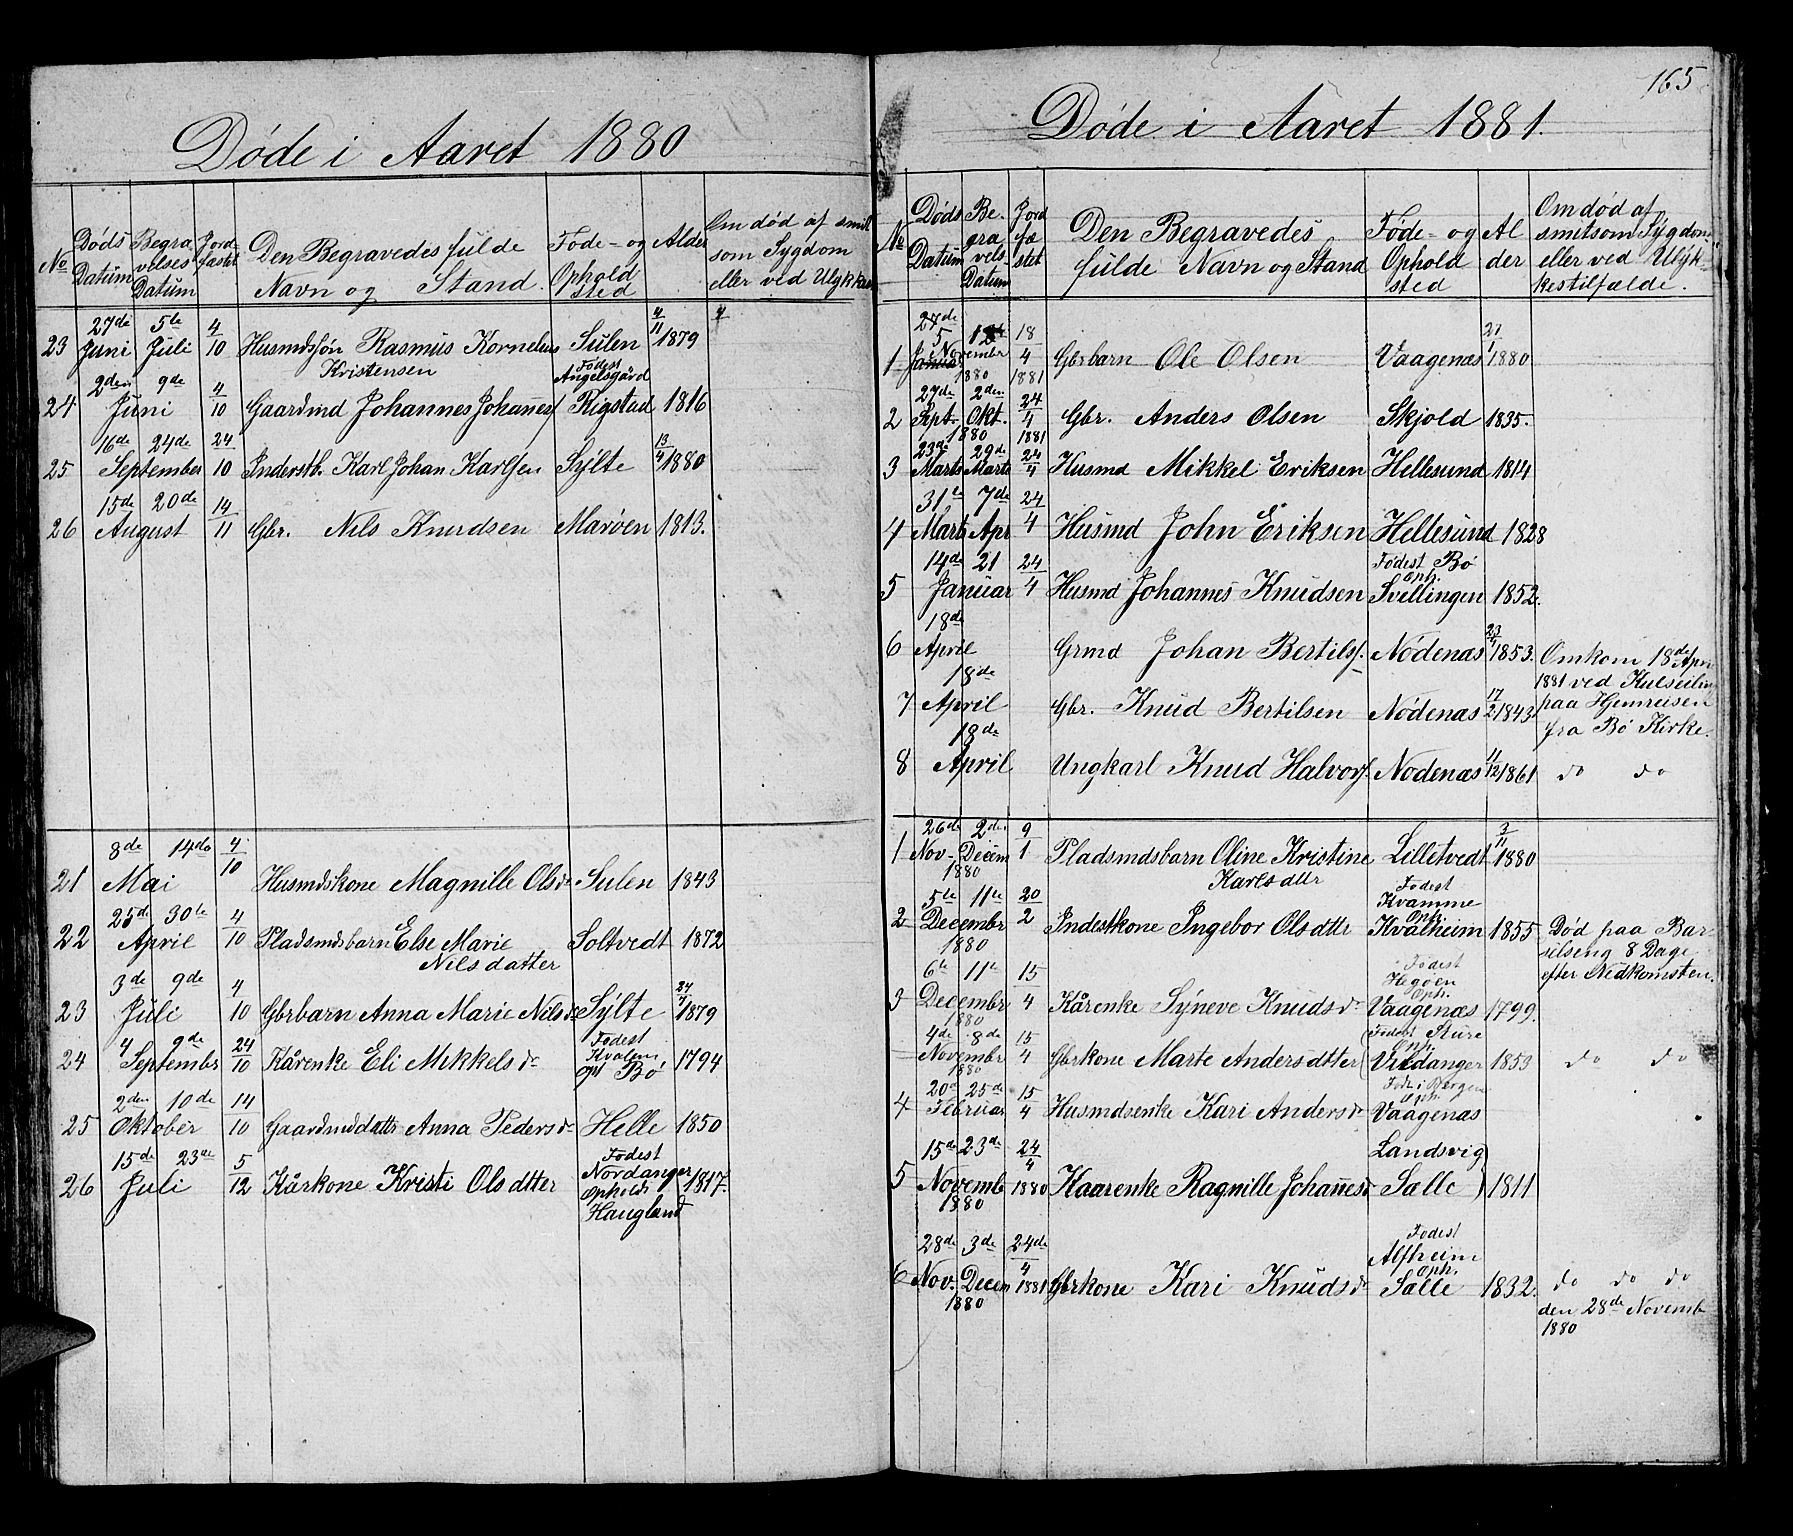 Døde i Aaret 1880
№ Døds Datum Begravelses Datum Jordfæstet Den Begravedes fulde Navn og Stand. Føde- og Ophold sted Alder Om død af smitsom Sygdom eller ved Ulykkes
23 27de Juni 5te Juli 4/10 Husmdssøn Rasmus Kornelius Kristensen Sulen 4/11 1879
24 2den Juni 9de 4/10 Gaardmd Johannes Johannes Fødest Angelsgård Rigstad 1816
25 16de September 24de 24/10 Inderstb. Karl Johan Karlsen Sylte 13/4 1880
26 15de August 20de 14/11 Gbr. Nils Knudsen Marøen 1813.
21 8de Mai 14de 4/10 Husmdskone Magnille Olsdr Sulen 1843
22 25de April 30te 4/10 Pladsmdsbarn Else Marie Nilsdatter Soltvedt 1872
23 3de Juli 9de 4/10 Gbrbarn Anna Marie Nilsdr Sylte 24/4 1879
24 4 September 9de 24/10 Kårenke Eli Mikkelsdr Fødest Kvalen oph Bø 1794
25 2den Oktober 10de 14/10 Gaardmddattr Anna Pedersdr Helle 1850
26 15de Juli 23de 5/12 Kårkone Kristi Olsdtter Fødest Nordanger Opholds Haugland 1817.
165
Døde i Aaret 1881.
№ Døds Datum Begravels Datum Jordfæstet Den Begravedes fulde Navn og Stand Føde- og Ophold sted Alder Om død af smitsom Sygdom eller ved Ulykkestilfælde.
1 27de 5 Januar November 1880 18/4 1881 Gbrbarn Ole Olsen Vaagenæs 21/1 1880
2 27de Sept. 2den Okt. 1880 24/4 1881 Gbr. Anders Olsen Skjold 1835.
3 23de Marts 29de Marts 24/4 Husmd Mikkel Eriksen Hellesund 1814
4 31te Marts 7de Apr 24/4 Husmd John Eriksen Hellesund 1828
5 14de Januar 21 24/4 Husmd Johannes Knudsen Fødest Bø Oph. Svillingen 1852.
6 18de April Grmd Johan Bertils. Nödenæs 23/4 1853. Omkom 18de Apri
1881 ved Kulseiling
7 18de April Gbr. Knud Bertilsen Nödenæs 17/2 1843 paa Hjemreisen
fra Bø Kirke.
8 18de April Ungkarl Knud Halvors. Nodenæs 4/12 1861 do do
1 26de Nov. 2den Decem 1880 9/1 Pladsmdsbarn Oline Kristine Karlsdttr Lilletvedt 3/11 1880
2 5te December 11te 1880 20/2 Indestkone Ingebor Olsdttr Fødest Kvamme Oph. Kvalheim 1855 Død paa Bar-
selseng 8 Dage
efter Nedkomsten.
3 6te December 11te 1880 15/4 Kårenke Syneve Knudsdr Fødest Hegøen Oph. Vaagenæs 1799.
4de November 8de 1880 15/4 Gbrkone Marte Andersdtter Fødest Sture Oph. Uredanger 1853 do do
4 20de Februar 25de 15/4 Husmdsenke Kari Andersdr Føde i Bergen Oph. Vaagenæs
5 15de Novemb 23de 1880 24/4 1880 Kaarenke Ragnille Johannesdr Landsvig Sælle 1811
6 28de Nov. 3de Decem 1880 24de/4 1881 Gbrkone Kari Knudsdr Fødest Alfheim Oph. Sælle 1832. do do do
den 28de Novemb
1880